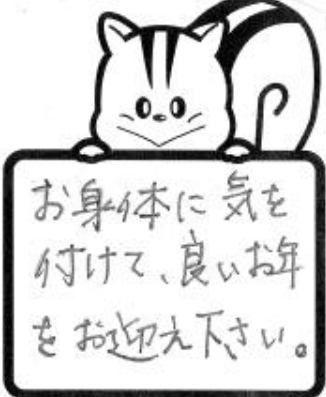 お身体に気を
付けて、良いお年
をお迎え下さい。